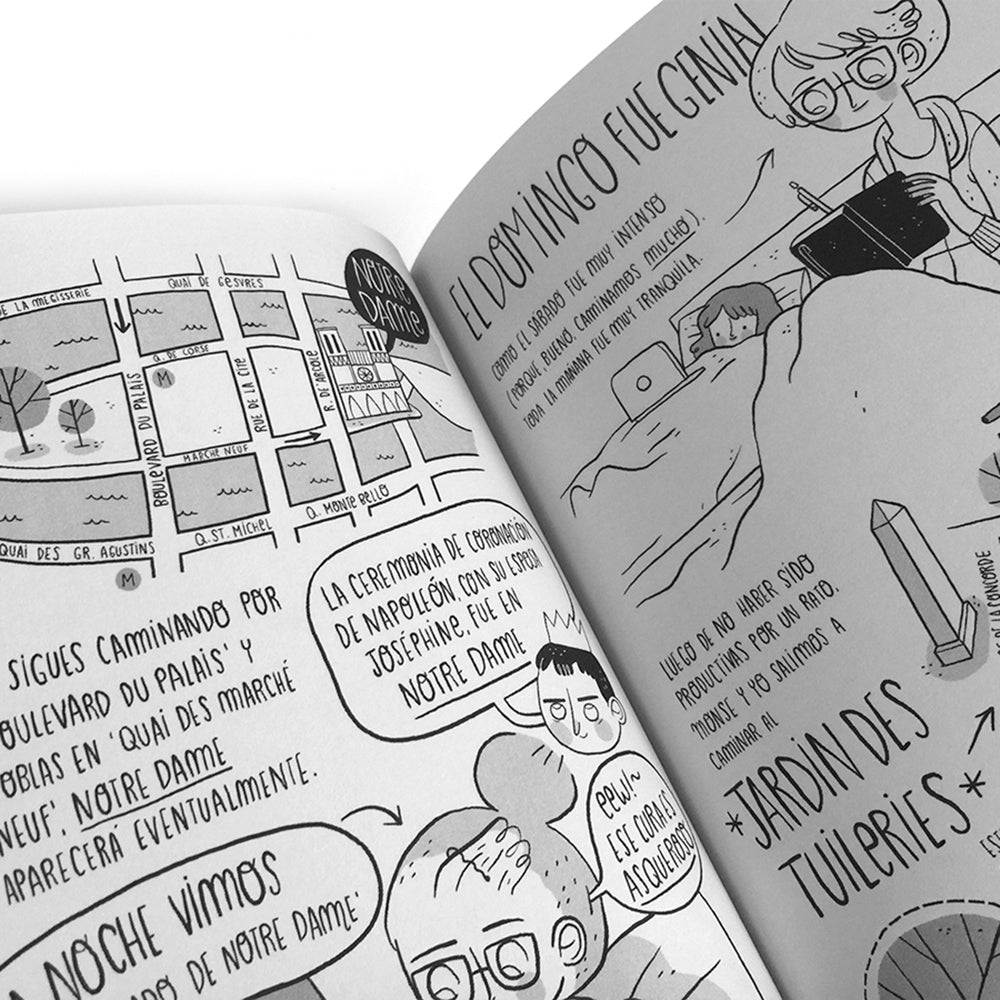 DE LA MEGISSERIE
QUAI DE GESVRES
NOTRE
DAME
Q. DE CORSE
M
BOULEVARD DU PALAIS
RUE DE LA CITE
R. DE ARCOLE
MARCHE NEUF
Q. MONTE BELLO
Q. ST. MICHEL
QUAI DES GR. AGUSTINS
M
SIGUES CAMINANDO POR
OULEVARD DU PALAIS' Y
OBLAS EN 'QUAI DES MARCHÉ
NEUF', NOTRE DAME
APARECERÁ EVENTUALMENTE.
LA CEREMONIA DE CORONACIÓN
DE NAPOLEÓN, CON SU ESPOSA
JOSÉPHINE, FUE EN
NOTRE DAME
PEW!~
ESE CURA ES
ASQUEROSO
NOCHE VIMOS
ADO DE NOTRE DAME'
EL DOMINGO FUE GENIAL
COMO EL SÁBADO FUE MUY INTENSO
(PORQUE, BUENO, CAMINAMOS MUCHO),
TODA LA MAÑANA FUE MUY TRANQUILA.
LUEGO DE NO HABER SIDO
PRODUCTIVAS POR UN RATO,
MONSE Y YO SALIMOS A
CAMINAR AL
*JARDIN DES
TUILERIES*
DE LA CONCORDE
ES